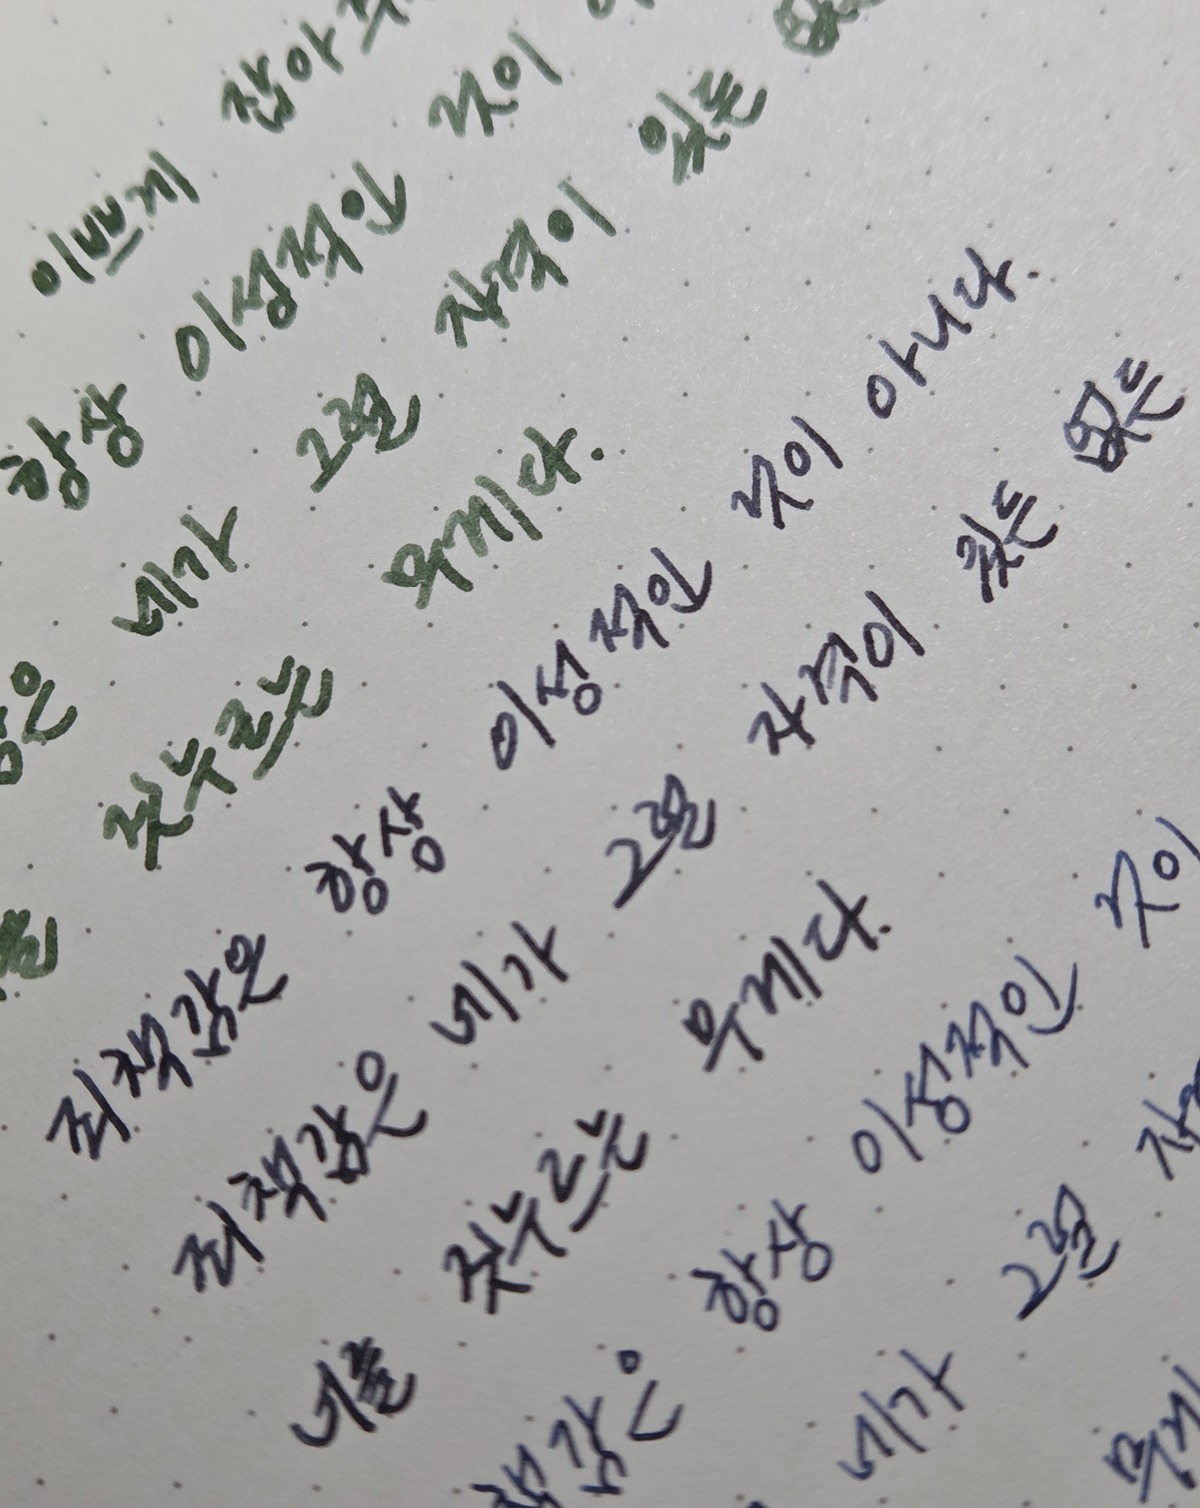 이쁘게 잡아
항상 이성적인 것이
은 네가 그럴 자격이 있는
짓누르는 무게다.
죄책감은 항상 이성적인 것이 아니다.
죄책감은 네가 그럴 자격이 있든 없든
너를 짓누르는 무게다.
책감은 항상 이성적인 것이
네가 그럴 자
무게